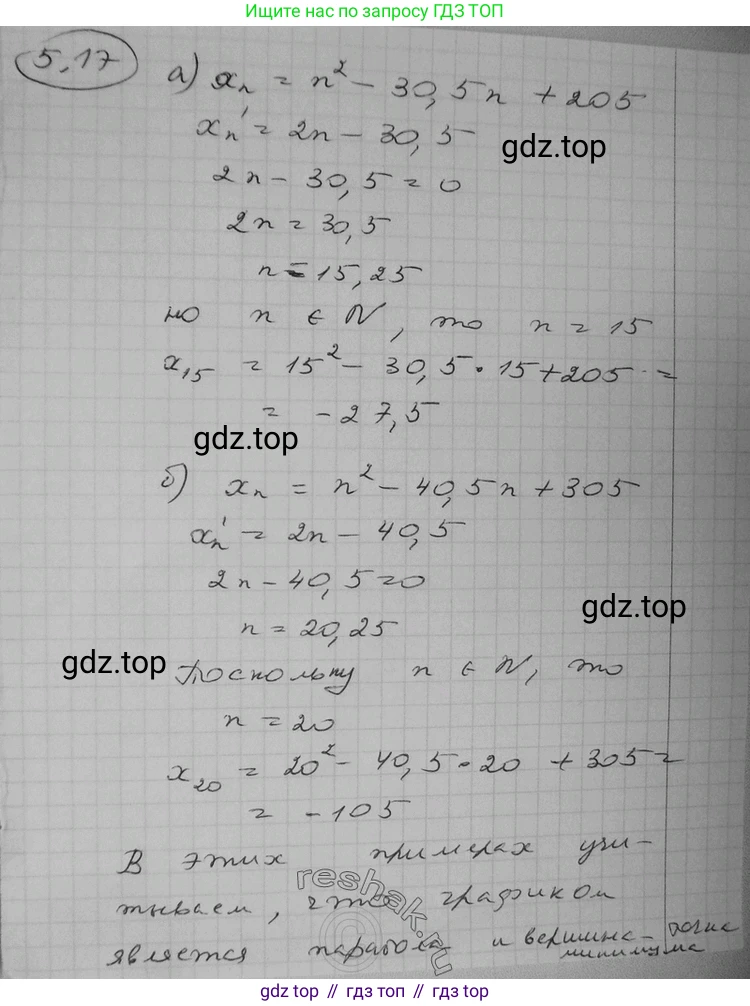 Ищите нас по запросу ГДЗ ТОП
5.17
а) xₙ = n² − 30,5n + 205
xₙ' = 2n − 30,5
gdz.top
2n − 30,5 = 0
2n = 30,5
n = 15,25
но n ∈ N, то n = 15
x₁₅ = 15² − 30,5 · 15 + 205 =
= −27,5
gdz.top
б) xₙ = n² − 40,5n + 305
xₙ' = 2n − 40,5
2n − 40,5 = 0
gdz.top
n = 20,25
gdz.top
Поскольку n ∈ N, то
n = 20
x₂₀ = 20² − 40,5 · 20 + 305 =
= −105
В этих примерах учи-
тываем, что графиком
является парабола и вершина – точка
минимума
reshak.ru
gdz.top // gdz.top // gdz.top